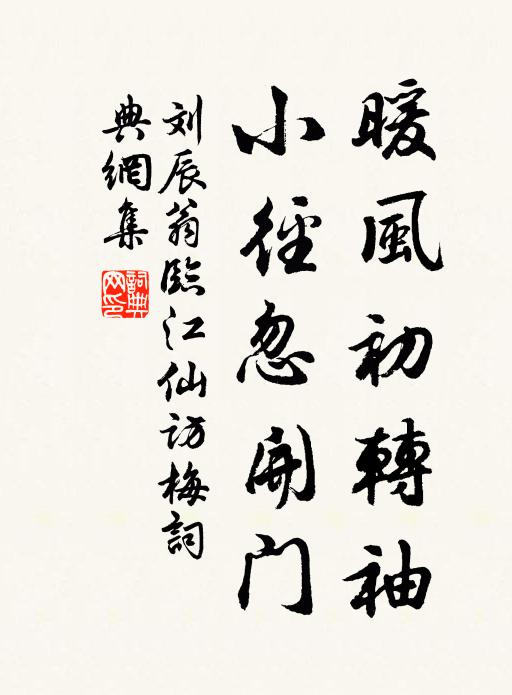 暖風初轉袖
小徑忽開门
刘辰翁臨江仙访梅詞
典網集
詞典网印